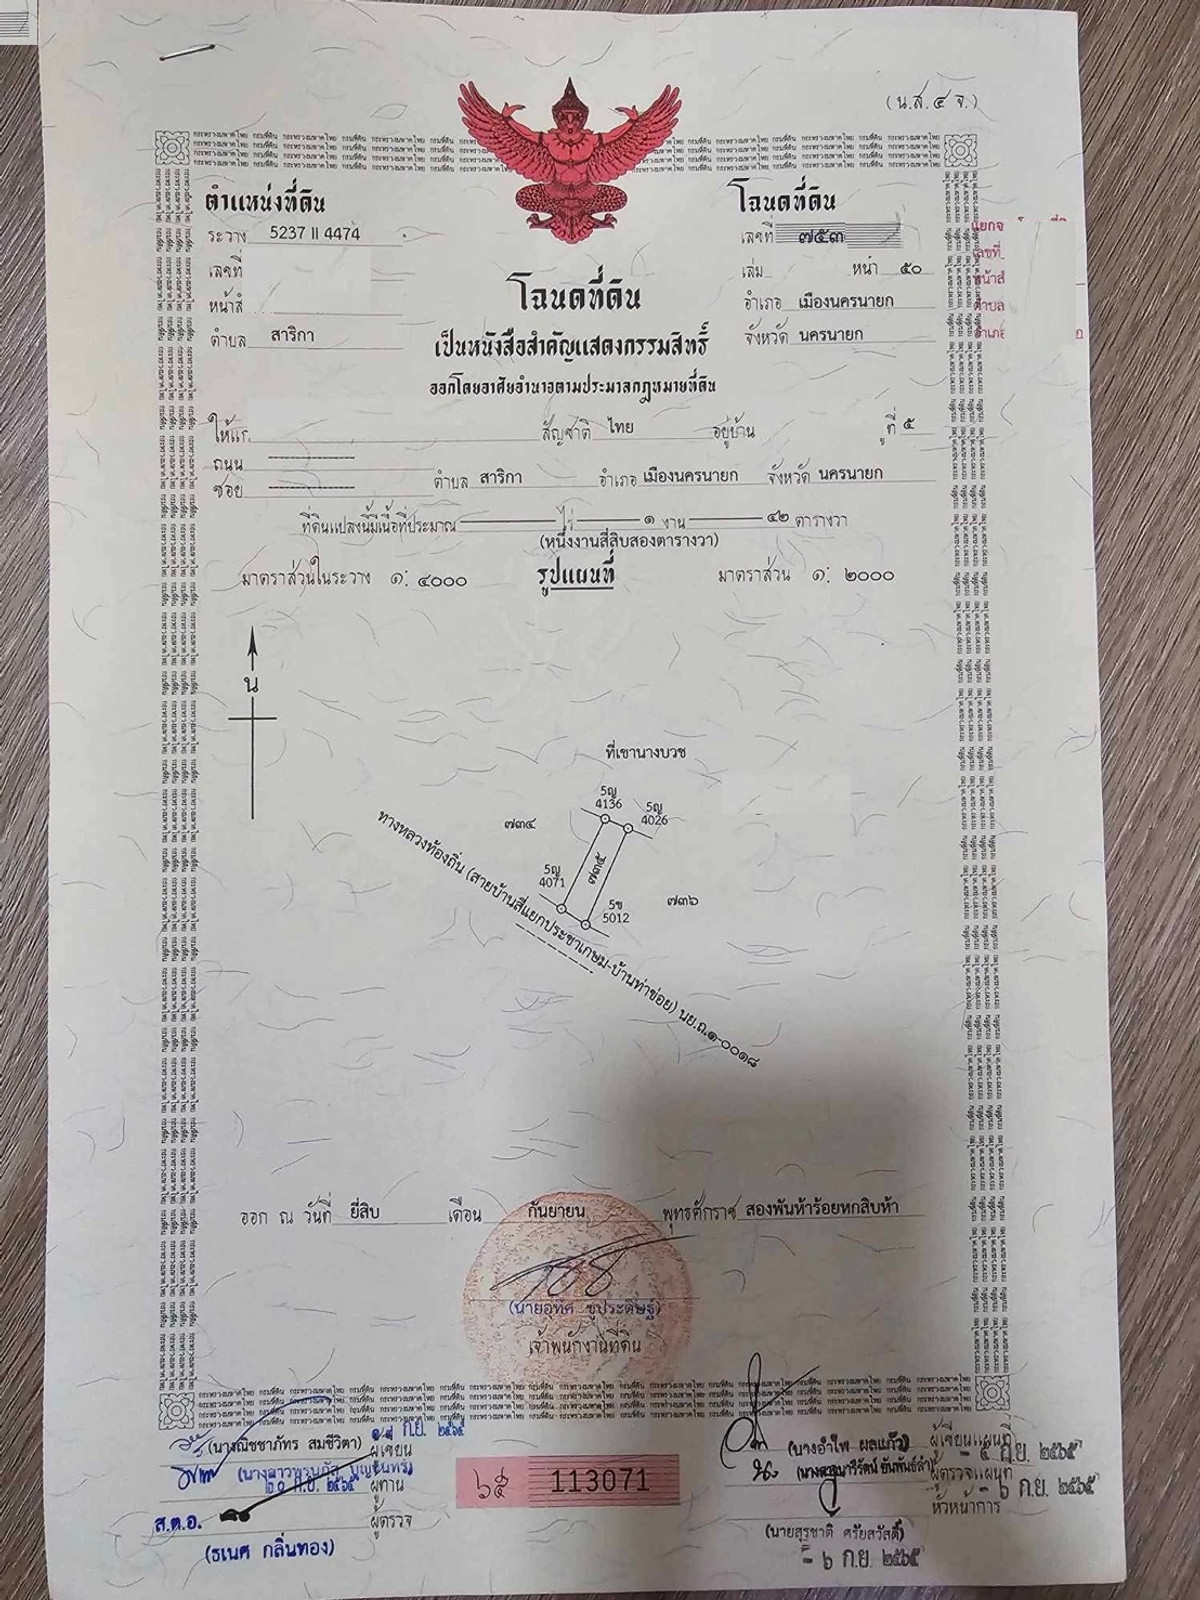 (น.ส.๔ จ.)
ตำแหน่งที่ดิน
ระวาง 5237 II 4474
เลขที่
หน้าสำ
ตำบล สาริกา
โฉนดที่ดิน
เลขที่ ๗๕๓
เล่ม หน้า ๕๐
อำเภอ เมืองนครนายก
จังหวัด นครนายก
โฉนดที่ดิน
เป็นหนังสือสำคัญแสดงกรรมสิทธิ์
ออกโดยอาศัยอำนาจตามประมวลกฎหมายที่ดิน
ให้แก่ สัญชาติ ไทย อยู่บ้าน ที่ ๕
ถนน
ซอย ตำบล สาริกา อำเภอ เมืองนครนายก จังหวัด นครนายก
ที่ดินแปลงนี้มีเนื้อที่ประมาณ ไร่ ๑ งาน ๔๒ ตารางวา
(หนึ่งงานสี่สิบสองตารางวา)
มาตราส่วนในระวาง ๑: ๔๐๐๐ รูปแผนที่ มาตราส่วน ๑: ๒๐๐๐
น
ที่เขานางบวช
5ญ
4136
5ญ
4026
๗๓๔
๗๓๕
5ญ
4071
๗๓๖
5ข
5012
ทางหลวงท้องถิ่น (สายบ้านสี่แยกประชาเกษม-บ้านท่าข่อย) นย.ถ.๑-๐๐๑๘
ออก ณ วันที่ ยี่สิบ เดือน กันยายน พุทธศักราช สองพันห้าร้อยหกสิบห้า
(นายอุทิศ ชูประดิษฐ์)
เจ้าพนักงานที่ดิน
ก.ย. ๒๕๖๕
(นางณิชชาภัทร สมชีวิตา) ผู้เขียน
๒๐ ก.ย. ๒๕๖๕ ผู้ทาน
ส.ต.อ. ผู้ตรวจ
(ธเนศ กลิ่นทอง)
๖๕ 113071
(นางอำไพ ผลแก้ว) ผู้เขียนแผนที่
ก.ย. ๒๕๖๕
ผู้ตรวจแผนที่
- ๖ ก.ย. ๒๕๖๕
หัวหน้าการ
(นายสุรชาติ ศรัยสวัสดิ์)
- ๖ ก.ย. ๒๕๖๕